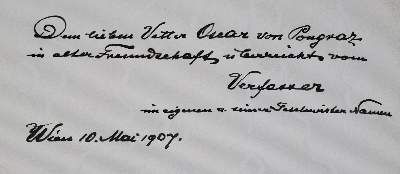 Dem lieben Vetter Oscar von Pongraz
in alter Freundschaft überreicht vom
Verfasser
in eigenen u. seiner Geschwister Namen
Wien 10. Mai 1907.